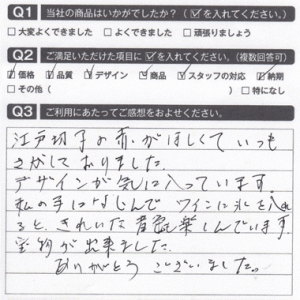 Q1 当社の商品はいかがでしたか？（☑を入れてください。）
□大変よくできました □よくできました □頑張りましょう
Q2 ご満足いただけた項目に☑を入れてください。（複数回答可）
☑価格 ☑品質 ☑デザイン ☑商品 ☑スタッフの対応 ☑納期
□その他（ ）□特になし
Q3 ご利用にあたってご感想をおよせください。
江戸切子の赤がほしくていつも
さがしておりました。
デザインが気に入っています。
私の手になじんでワインに氷を入れ
ると、きれいな音色楽しんでいます。
宝物が出来ました。
ありがとうございました。